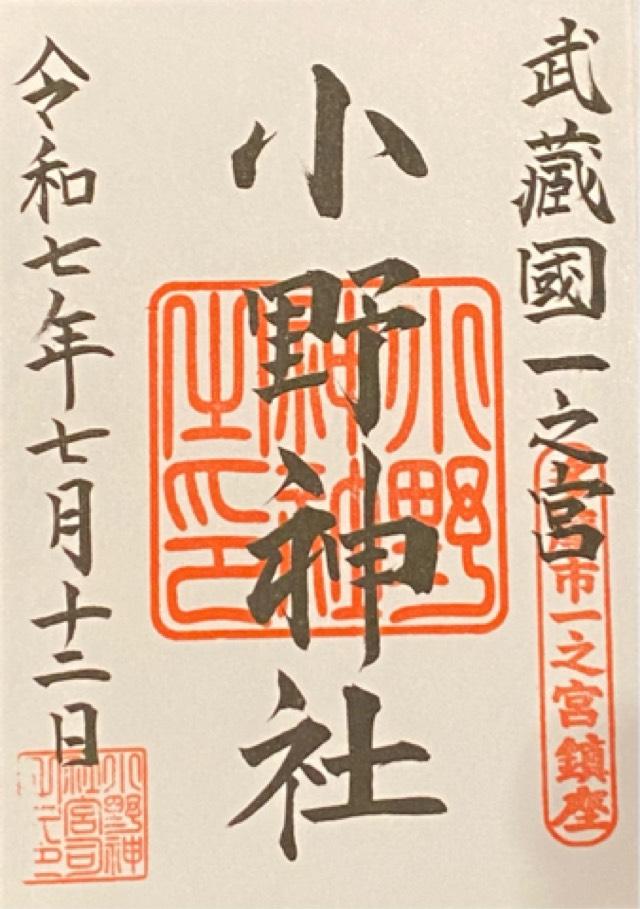 武藏國一之宮
多摩市一之宮鎮座
小野神社
小野神社之印
令和七年七月十二日
小野神社宮司之印